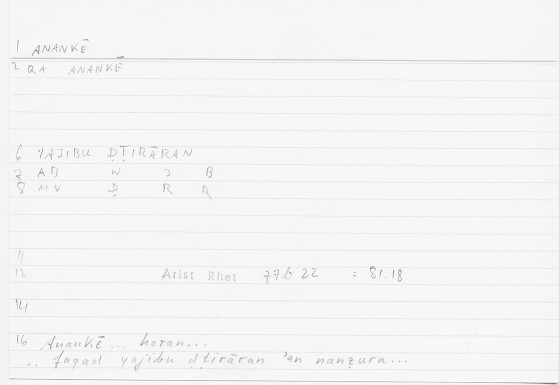 1 ANANKĒ
2 QA ANANKĒ
6 YAJIBU ḌṬIRĀRAN
7 AB W J B
8 MV Ḍ R R
11
12 Arist Rhet 77b22 = 81.18
14
16 Anankē... horan...
.. faqad yajibu ḍtirāran 'an nanẓura...